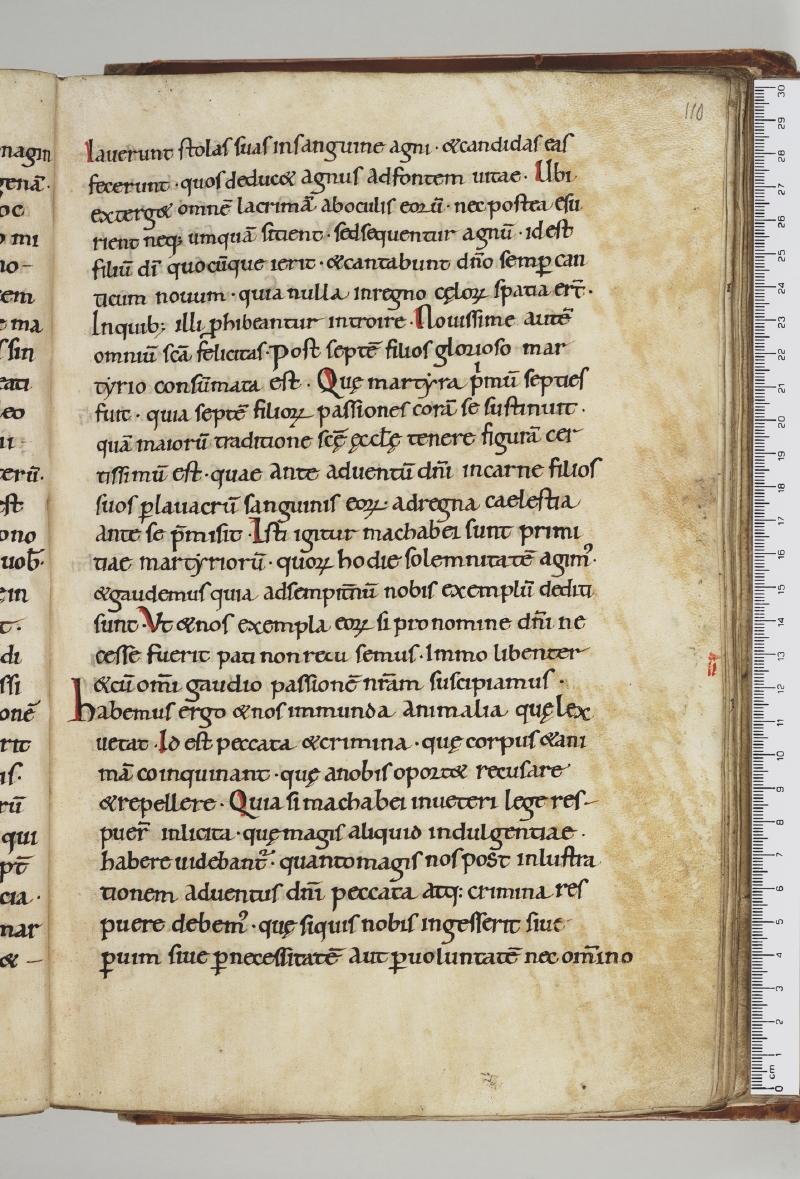 110
lauerunt stolas suas insanguine agni · &candidas eas
fecerunt · quos deduc& agnus adfontem uitae · Ubi
exterg& omnē lacrimā aboculis eoꝝ̄ · nec postea esu
rient neq; umquā sitient · sedsequentur agnū · idest
filiū dī quocūque ierit · &cantabunt dn̄o semꝑ can
ticum nouum · quia nulla inregno cęloꝝ spatia er̄t ·
Inquib; illi ꝓhibeantur introire · Nouissime autē
omniū sc̄a felicitas · Post septē filios glorioso mar
tyrio consūmata est · Quę martyra pͥmū septies
fuit · quia septē filioꝝ passiones corā se sustinuit ·
quā maiorū traditione sc̄ę ęccl̄ę tenere figurā cer
tissimū est · quae ante aduentū dn̄i incarne filios
suos ꝑlauacrū sanguinis eoꝝ · adregna caelestia
ante se p̄misit · Isti igitur machabei sunt primi
tiae martyriorū · quoꝝ hodie solemnitatē agim᾽ ·
&gaudemus quia adsempit̄nū nobis exemplū dediti
sunt · Vt &nos exempla eoꝝ si pro nomine dn̄i ne
cesse fuerit pati non recu semus · Immo libenter
&cū om̄i gaudio passionē nr̄am suscipiamus ·
habemus ergo &nos inmunda animalia quę lex
uetat · Id est peccata &crimina · quę corpus &ani
mā coinquinant · quę anobis oport& recusare
&repellere · Quia si machabei inueteri lege res-
puer̄ inlicita · quę magis aliquid indulgentiae ·
habere uidebant᾽ · quanto magis nos post inlustra
tionem aduentus dn̄i peccata atq; crimina res
puere debem᾽ · quę siquis nobis ingesserit siue
ꝑuim siue ꝑnecessitatē aut ꝑuoluntatē nec om̄ino